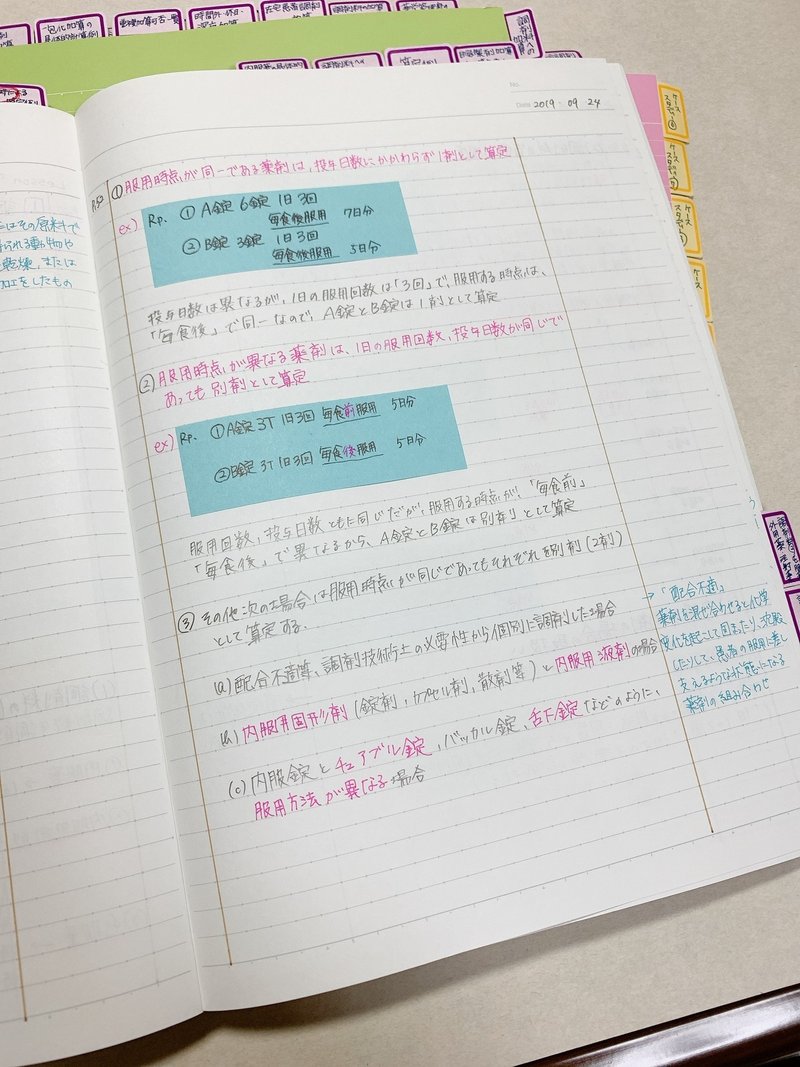 一包化加算の
重複加算可否一覧
時間外・休日・
在宅患者調剤
No.
Date 2019・09・24
ケース
スタディ
ケース
スタディ
ケース
スタディ
ケース
スタディ
はその原料で
乾燥、または
加工をしたもの
P.50
①服用時点が同一である薬剤は、投与日数にかかわらず1剤として算定
ex)
Rp. ①A錠 6錠 1日3回
毎食後服用 7日分
②B錠 3錠 1日3回
毎食後服用 5日分
投与日数は異なるが、1日の服用回数は「3回」で、服用する時点は、
「毎食後」で同一なので、A錠とB錠は1剤として算定
②服用時点が異なる薬剤は、1日の服用回数、投与日数が同じで
あっても別剤として算定
ex)
Rp. ①A錠 3T 1日3回 毎食前服用 5日分
②B錠 3T 1日3回 毎食後服用 5日分
服用回数、投与日数ともに同じだが、服用する時点が、「毎食前」
「毎食後」で異なるから、A錠とB錠は別剤として算定
③その他次の場合は服用時点が同じであってもそれぞれを別剤(2剤)
として算定する。
(a)配合不適等、調剤技術上の必要性から個別に調剤した場合
(b)内服用固形剤(錠剤、カプセル剤、散剤等)と内服用液剤の場合
(c)内服錠とチュアブル錠、バッカル錠、舌下錠などのように、
服用方法が異なる場合
→「配合不適」
薬剤を混ぜ合わせると化学
変化を起こして固まったり、沈殿
したりして、患者の服用に差し
支えるような状態になる
薬剤の組み合わせ